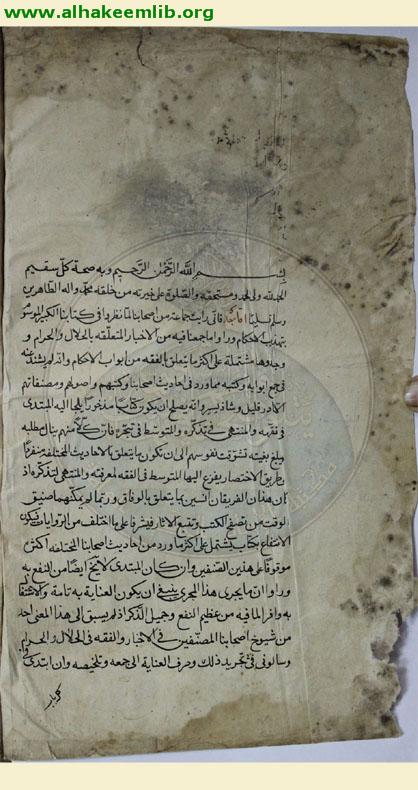 www.alhakeemlib.org
بسم الله الرحمن الرحيم وبه صحة كل سقيم
الحمد لله ولي الحمد ومستحقه والصلوة على خيرته من خلقه محمد واله الطاهرين
وسلم تسليما اما بعد فاني رايت جماعة من اصحابنا لما نظروا في كتابنا الكبير الموسوم
بتهذيب الاحكام وراوا ما جمعنا فيه من الاخبار المتعلقه بالحلال والحرام و
وجدوها مشتملة على اكثر ما يتعلق بالفقه من ابواب الاحكام وانه لم يشذ عنه
في جميع ابوابه وكتبه مما ورد في احاديث اصحابنا وكتبهم واصولهم ومصنفاتهم
الا نادر قليل وشاذ يسير وانه يصلح ان يكون كتابا مذخورا يلجا اليه المبتدى
في تفقهه والمنتهى في تذكره والمتوسط في تبحره فان كلا منهم ينال مطلبه
ويبلغ بغيته تشوقت نفوسهم الى ان يكون ما يتعلق بالاحاديث المختلفه منفردا
على طريق الاختصار يفزع اليها المتوسط في الفقه لمعرفته والمنتهى لتذكره اذ
كان هذان الفريقان انسين بما يتعلق بالوفاق وربما لم يمكنهما ضيق
الوقت من تصفح الكتب وتتبع الاثار فيشرفا على ما اختلف من الروايات فيكون
الانتفاع بكتاب يشتمل على اكثر ما ورد من احاديث اصحابنا المختلفه اكثره
موقوفا على هذين الصنفين وان كان المبتدى لا يخلو ايضا من النفع به
وراوا ان ما يجرى هذا المجرى ينبغي ان يكون العناية به تامة والاشتغال
به وافرا لما فيه من عظيم النفع وجميل الذكر اذ لم يسبق الى هذا المعنى احد
من شيوخ اصحابنا المصنفين في الاخبار والفقه في الحلال والحرام
وسالوني في تجريد ذلك وصرف العناية الى جمعه وتلخيصه وان ابتدى